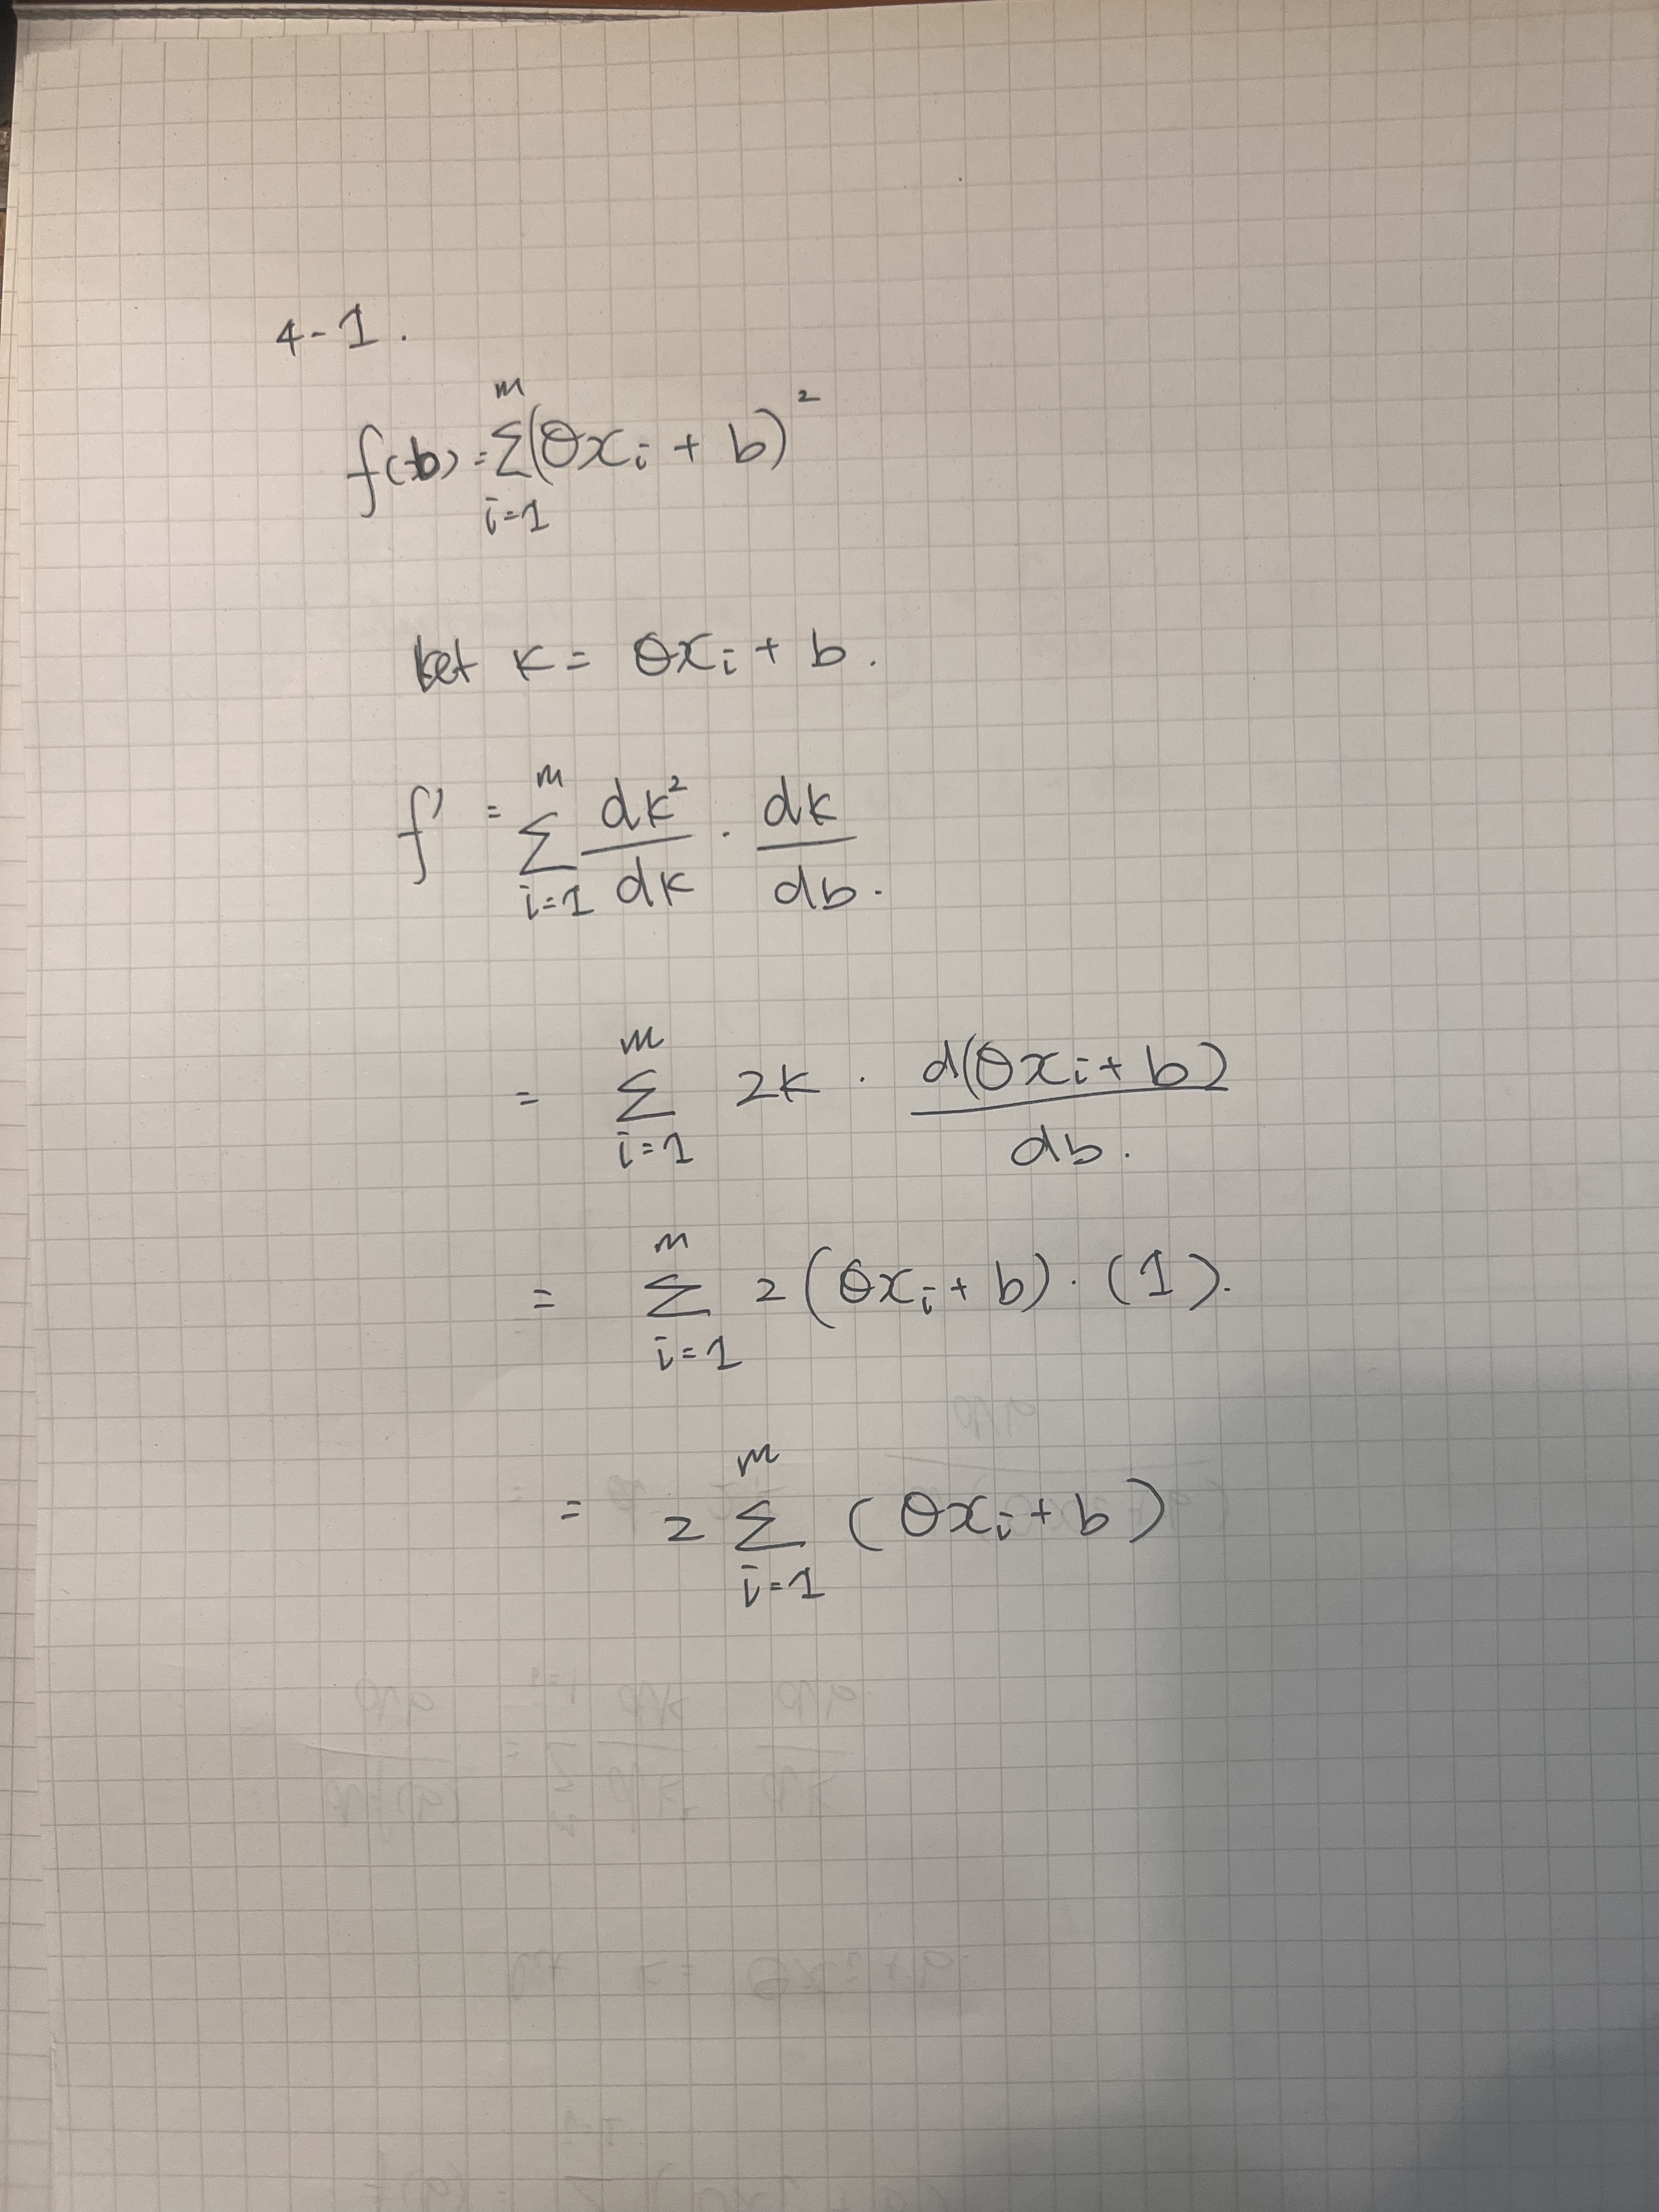 4-1.
f(b) = Σ_{i=1}^{m} (θx_i + b)^2
let k = θx_i + b.
f' = Σ_{i=1}^{m} dk^2/dk · dk/db.
= Σ_{i=1}^{m} 2k · d(θx_i + b)/db.
= Σ_{i=1}^{m} 2(θx_i + b) · (1).
= 2 Σ_{i=1}^{m} (θx_i + b)